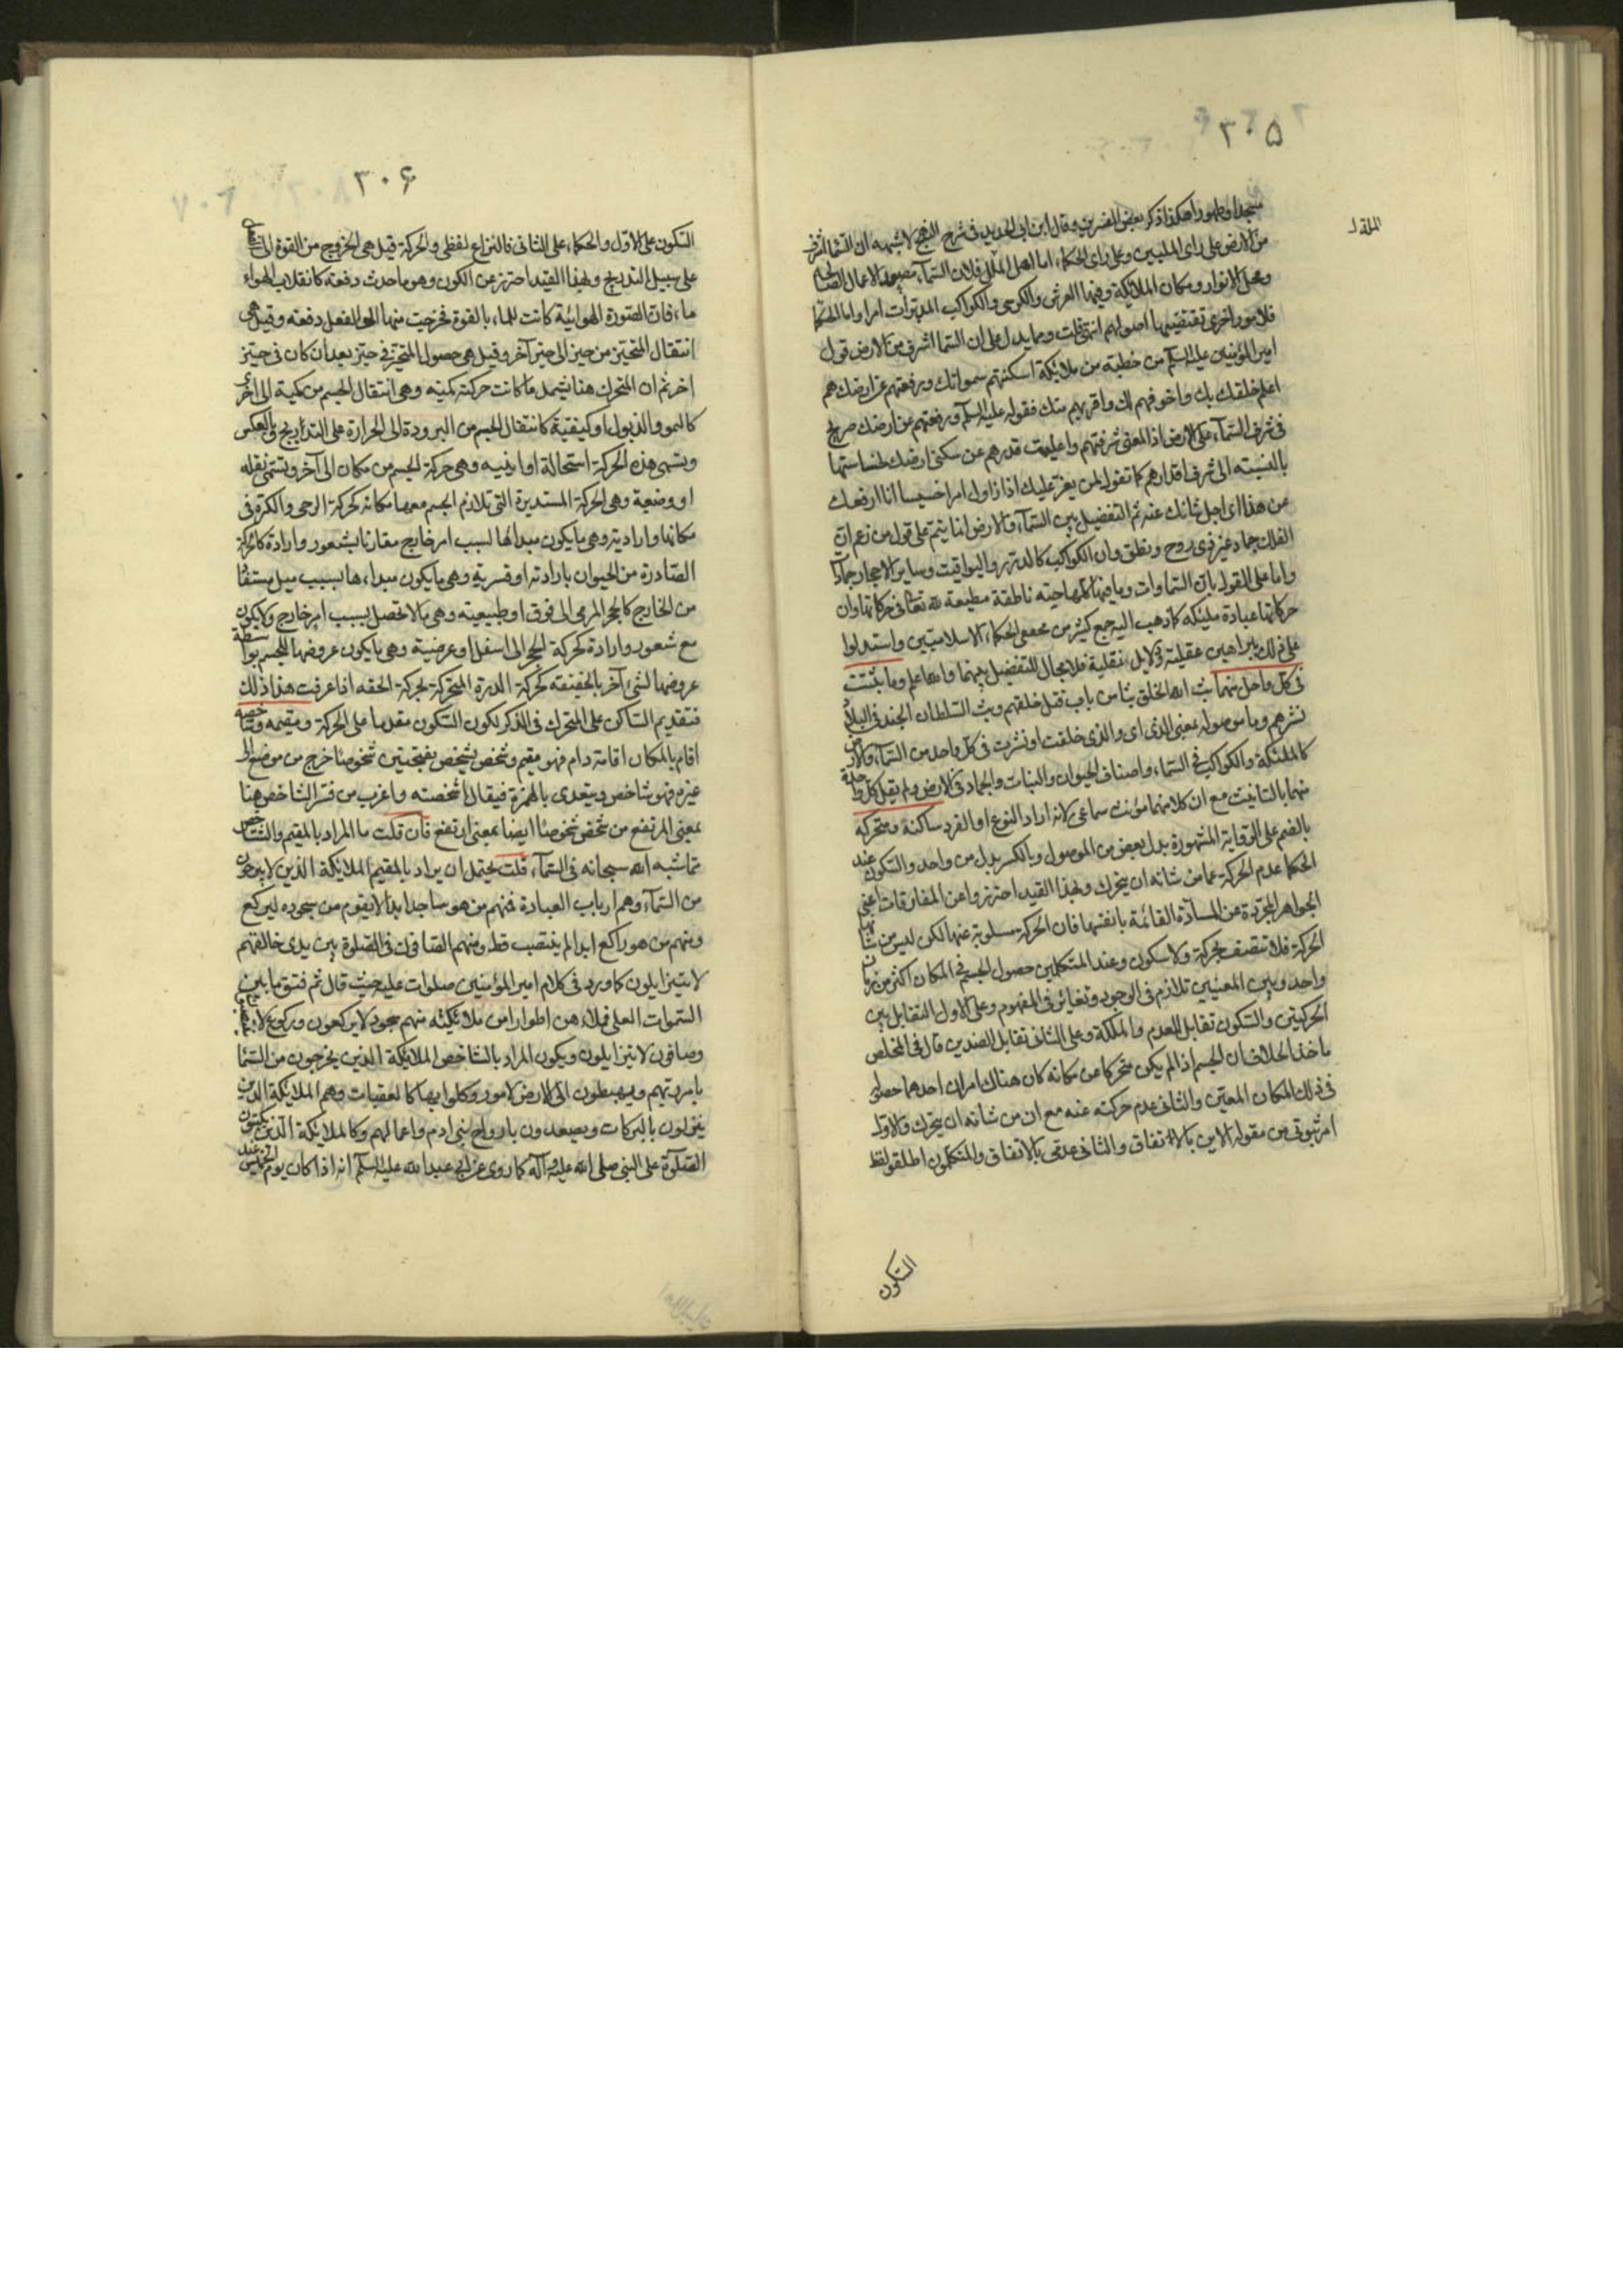 ٣٠۵
مسجدا وطهورا هكذا ذكر بعض المفسرين وقال ابن ابي الحديد في شرح النهج لا شبهة ان السماء اشرف
من الارض على راى المليين وعلى راى الحكماء اما اهل الملل فلان السماء مصعد الاعمال الصالحة
ومحل الانوار ومكان الملائكة وفيها العرش والكرسي والكواكب المدبرات امرا واما الحكماء
فلامور اخرى تقتضيها اصولهم انتهى قلت ومما يدل على ان السماء اشرف من الارض قول
امير المؤمنين عليه السلم من خطبته من ملائكة اسكنتهم سمواتك ورفعتهم عن ارضك هم
اعلم خلقك بك واخوفهم لك واقربهم منك فقوله عليه السلم ورفعتهم عن ارضك صريح
في شرف السماء على الارض اذ المعنى شرفتهم واعليت قدرهم عن سكنى ارضك لخساستها
بالنسبة الى شرف اقدارهم كما تقول لمن يعز عليك اذا زاول امرا خسيسا انا ارفعك
عن هذا اى اجل شانك عنه ثم التفضيل بين السماء والارض انما يتم على قول من زعم ان
الفلك جماد غير ذى روح ونطق وان الكواكب كالدرر واليواقيت وساير الاحجار جمادا
واما على القول بان السماوات وما فيها كلها حية ناطقة مطيعة لله تعالى في حركاتها وان
حركاتها عبادة ملكية كما ذهب اليه جمع كثير من محققى الحكماء الاسلاميين واستدلوا
على ذلك ببراهين عقلية ودلايل نقلية فلا مجال للتفضيل بينهما والله اعلم وما بثثت
في كل واحد منهما بث الله الخلق بثا من باب قتل خلقهم وبث السلطان الجند في البلاد
نشرهم وما موصولة بمعنى الذى اى والذى خلقت او نشرت في كل واحد من السماء والارض
كالملئكة والكواكب في السماء واصناف الحيوان والنبات والجماد في الارض ولم يقل كل واحدة
منهما بالتانيث مع ان كلا منهما مؤنث سماعى لانه اراد النوع او الفرد ساكنه ومتحركه
بالضم على الرواية المشهورة بدل بعض من الموصول وبالكسر بدل من واحد والسكون عند
الحكما عدم الحركة عما من شانه ان يتحرك وبهذا القيد احترزوا عن المفارقات اعنى
الجواهر المجردة عن المادة القائمة بانفسها فان الحركة مسلوبة عنها لكن ليس من شانها
الحركة فلا تتصف بحركة ولا سكون وعند المتكلمين حصول الجسم في المكان اكثر من زمان
واحد وبين المعنيين تلازم في الوجود وتغاير في المفهوم وعلى الاول التقابل بين
الحركتين والسكون تقابل العدم والملكة وعلى الثانى تقابل الضدين قال في الملخص
ماخذ الخلاف ان الجسم اذا لم يكن متحركا عن مكانه كان هناك امران احدهما حصوله
في ذلك المكان المعين والثانى عدم حركته عنه مع ان من شانه ان يتحرك والاول
امر ثبوتى من مقولة الاين بالاتفاق والثانى عدمى بالاتفاق والمتكلمون اطلقوا لفظ
السكون
٣٠۶
السكون على الاول والحكماء على الثانى فالنزاع لفظى والحركة قيل هى الخروج من القوة الى الفعل
على سبيل التدريج وبهذا القيد احترز عن الكون وهو ما حدث دفعة كانقلاب الهواء
ماء فان الصورة الهوائية كانت للماء بالقوة فخرجت منها الى الفعل دفعة وقيل هى
انتقال المتحيز من حيز الى حيز آخر وقيل هى حصول المتحيز في حيز بعد ان كان في حيز
اخر ثم ان المتحرك هنا يشمل ما كانت حركته كمية وهى انتقال الجسم من كمية الى اخرى
كالنمو والذبول او كيفية كانتقال الجسم من البرودة الى الحرارة على التدريج وبالعكس
وتسمى هذه الحركة استحالة او اينية وهى حركة الجسم من مكان الى آخر وتسمى نقلة
او وضعية وهى الحركة المستديرة التى يلازم الجسم معها مكانه كحركة الرحى والكرة في
مكانها وارادية وهى ما يكون مبدأها لسبب امر خارج مقارنا بشعور وارادة كالحركة
الصادرة من الحيوان بارادته او قسرية وهى ما يكون مبداءها بسبب ميل مستفاد
من الخارج كالحجر المرمى الى فوق او طبيعية وهى ما لا تحصل بسبب امر خارج ولا يكون
مع شعور وارادة كحركة الحجر الى اسفل او عرضية وهى ما يكون عروضها للجسم بواسطة
عروضها لشئ آخر بالحقيقة كحركة الدرة المتحركة بحركة الحقه اذا عرفت هذا ذلك
فتقديم الساكن على المتحرك في الذكر لكون السكون مقدما على الحركة ومقيمه وشاخصه
اقام بالمكان اقامة دام فهو مقيم وشخص يشخص بفتحتين شخوصا خرج من موضع الى
غيره فهو شاخص ويتعدى بالهمزة فيقال اشخصته واغرب من فسر الشاخص هنا
بمعنى المرتفع من شخص شخوصا ايضا بمعنى ارتفع فان قلت ما المراد بالمقيم والشاخص
مما شبه الله سبحانه في السماء قلت يحتمل ان يراد بالمقيم الملائكة الذين لا يبرحون
من السماء وهم ارباب العبادة فمنهم من هو ساجد ابدا لا يقوم من سجوده ليركع
ومنهم من هو راكع ابدا لم ينتصب قط ومنهم الصافون في الصلوة بين يدى خالقهم
لا يتزايلون كما ورد في كلام امير المؤمنين صلوات عليه حيث قال ثم فتق ما بين
السموات العلى فملاءهن اطوارا من ملائكته منهم سجود لا يركعون وركوع لا ينتصبون
وصافون لا يتزايلون ويكون المراد بالشاخص الملائكة الذين يخرجون من السماء
بامر ربهم ويهبطون الى الارض لامور وكلوا بها كالمعقبات وهم الملائكة الذين
ينزلون بالبركات ويصعدون بارواح بنى ادم واعمالهم وكالملائكة الذين يكتبون
الصلوة على النبى صلى الله عليه وآله كما روى عن ابى عبد الله عليه السلم انه اذا كان يوم الخميس عند